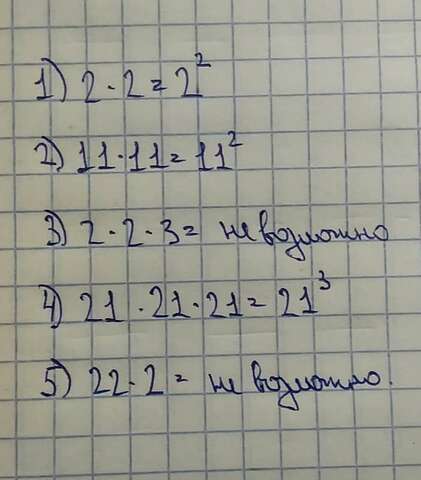 1) 2 · 2 = 2²
2) 11 · 11 = 11²
3) 2 · 2 · 3 = невозможно
4) 21 · 21 · 21 = 21³
5) 22 · 2 = не возможно.